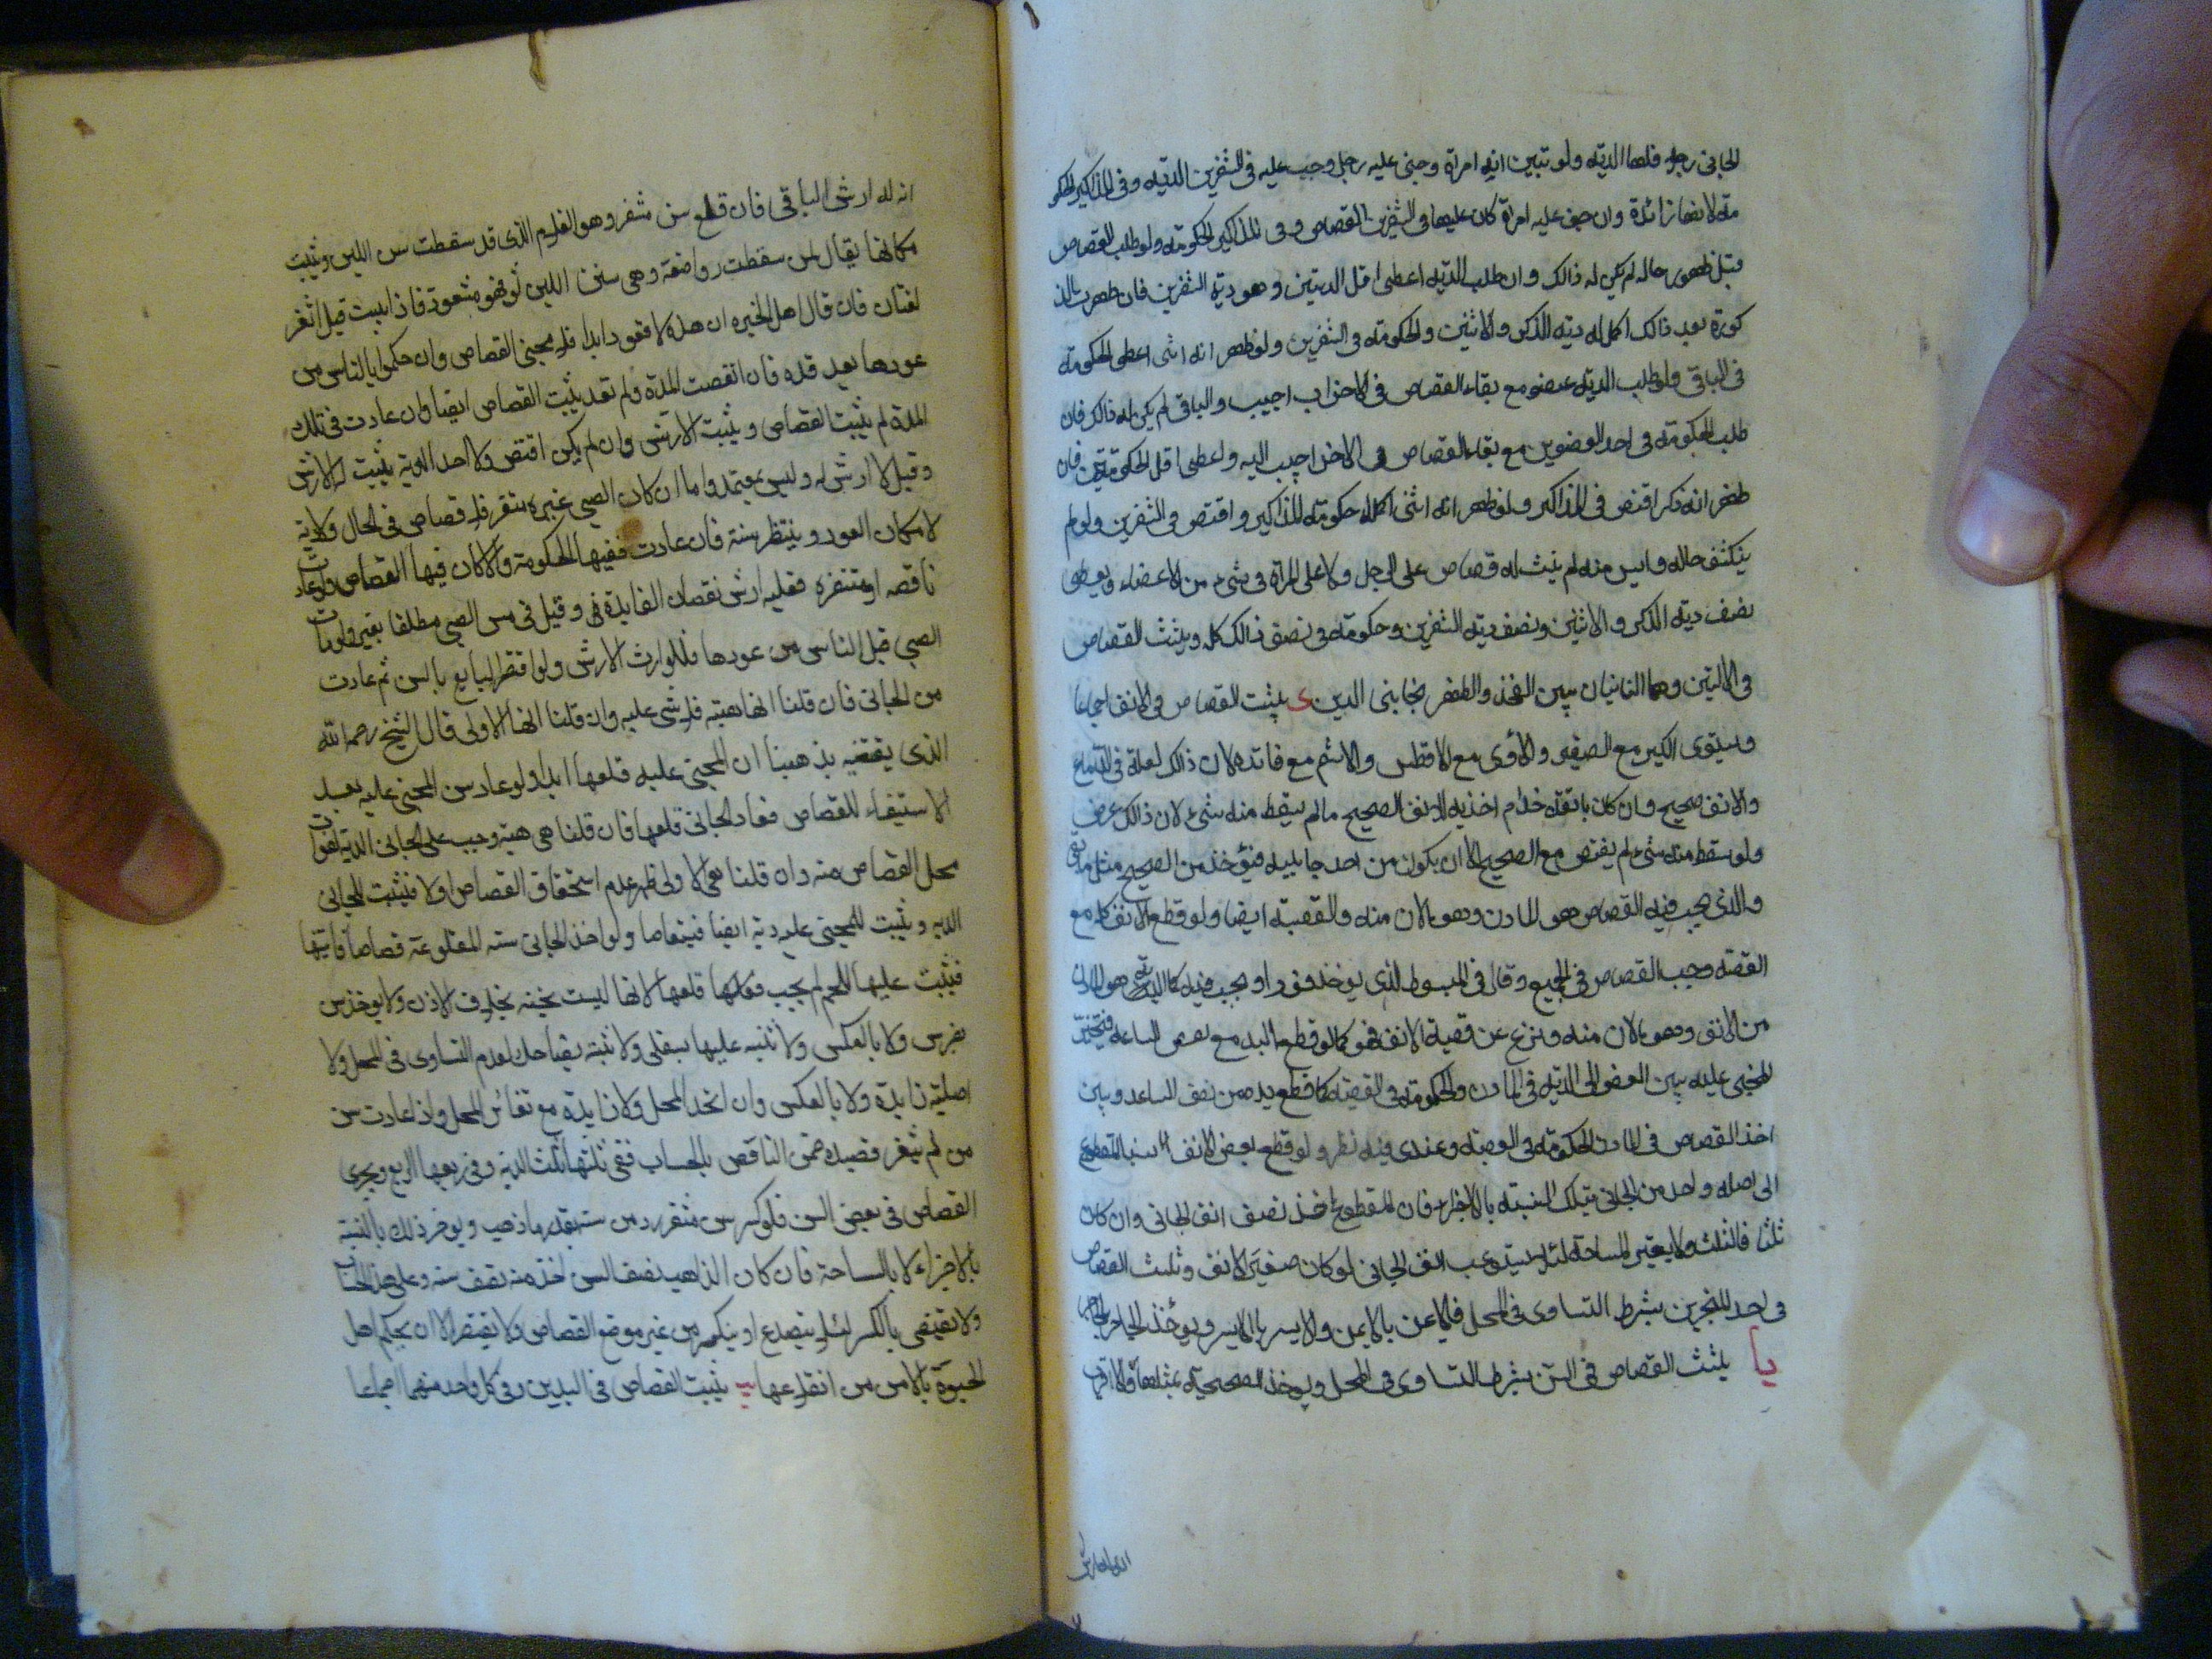 الجانى رجلا فلها الديته ولو تبين انه امراة وجنى عليه رجل وجب عليه فى الشفرين الديته وفى المذاكير الحكو
مته لانها زائدة وان جنى عليه امراة كان عليها فى الشفرين القصاص وفى المذاكير الحكومته ولو طلب القصاص
قبل ظهور حاله لم يكن له ذالك وان طلب الديه اعطى اقل الديتين وهو دية الشفرين فان ظهرت بالذ
كورة بعد ذالك اكمل له ديته الذكر والانثيين والحكومته فى الشفرين ولو ظهر انه انثى اعطى الحكومته
فى الباقى ولو طلب الديته عضو مع بقاء القصاص فى الاخر اب اجيب والباقى لم يكن له ذالك فان
طلب الحكومته فى احد العضوين مع بقاء القصاص فى الاخر اجيب اليه واعطى اقل الحكومتين فان
ظهر انه ذكر اقتص فى المذاكير ولو ظهر انه انثى اكمل له حكومته المذاكير واقتص فى الشفرين ولو لم
ينكشف حاله وايس منه لم يثبت له قصاص على الرجل ولا على المراة فى شىء من الاعضاء ويعطى
نصف ديته الذكر والانثيين ونصف ديته الشفرين وحكومته فى نصف ذالك كله ويثبت القصاص
فى الاليتين وهما النابتان بين الفخذ والظهر بجانبى الدبر ى يثبت القصاص فى الانف اجماعا
ويستوى الكبير مع الصغير والاقنى مع الافطس والاشم مع فاقده لان ذالك لعلة فى الدماغ
والانف صحيح وان كان بانفه جذام اخذ به الانف الصحيح مالم يسقط منه شىء لان ذالك مرض
ولو سقط منه شىء لم يقتص مع الصحيح الا ان يكون من احد جانبيه فيؤخذ من الصحيح مثل ما بقى
والذى يجب فيه القصاص هو المارن وهو مالان منه والقصبته ايضا ولو قطع الانف كله مع
القصبه وجب القصاص فى الجميع وقال فى المبسوط الذى يوخذ قودا ويجب فيه كمال الديته هو المارن
من الانف وهو مالان منه ونزع عن قصبة الانف فهو كما لو قطع اليد مع بعض الساعد فيتخير
المجنى عليه بين العفو الى الديته فى المارن والحكومته فى القصبته كما قطع يده من نصف الساعد وبين
اخذ القصاص فى المارن والحكومته فى القصبته وعندى فيه نظر ولو قطع بعض الانف نسبنا المقطوع
الى اصله واخذ من الجانى بتلك النسبته بالاجزاء فان المقطوع نصف اخذ نصف انف الجانى وان كان
ثلثا فالثلث ولا يعتبر المساحة لئلا يستوعب انف الجانى لو كان صغير الانف وثبت القصاص
فى احد المنخرين بشرط التساوى فى المحل فالايمن بالايمن والايسر بالايسر ويوخذ الحاجز بالحاجز
يا يثبت القصاص فى السن بشرط التساوى فى المحل ويوخذ الصحيحته بمثلها والاقرب
انه له ارش الباقى فان قلع سن مثغر وهو الغلام الذى قد سقطت سن اللبن ونبت
مكانها يقال لمن سقطت رواضعه وهى سنن اللبن ثغر فهو مثغور فاذا نبت قيل اثغر
لغتان فان قال اهل الخبره ان هذه لا تعود ابدا فللمجنى القصاص وان حكموا بالناس من
عودها بعد قده فان انقضت المدة ولم تعد يثبت القصاص ايضا وان عادت فى تلك
المدة لم يثبت القصاص ويثبت الارش وان لم يكن اقتص ولا احد الدية يثبت له الارش
وقيل لا ارش له وليس بمعتمد واما ان كان الصبى غير مثغر فلا قصاص فى الحال ولا دية
لامكان العود وينتظر سنة فان عادت ففيها الحكومة والا كان فيها القصاص ولو عادت
ناقصه او متغيره فعليه ارش نقصان الفايدة وقيل فى سن الصبى مطلقا بعير ولو مات
الصبى قبل الناس من عودها فللوارث الارش ولو اقتص البالغ بالسن ثم عادت
من الجانى فان قلنا انها هبته فلا شى عليه وان قلنا انها الاولى قال الشيخ رحمه الله
الذى يقتضيه مذهبنا ان المجنى عليه قلعها ابدا ولو عاد سن المجنى عليه بعد
الاستيفاء للقصاص فعاد الجانى قلعها فان قلنا هى هبته وجب على الجانى الدية لفوات
محل القصاص منه وان قلنا هى الاولى ظهر عدم استحقاق القصاص اولا فيثبت للجانى
الديه ويثبت للمجنى عليه دية ايضا فيتقاصا ولو اخذ الجانى سنه المقلوعة قصاصا فاثبتها
فنبت عليها اللحم لم يجب قلعها لانها ليست نجسه بخلاف الاذن ولا يوخذ سن
بضرس ولا بالعكس ولا ثنيه عليها بسفلى ولا ثنيه بضاحك لعدم التساوى فى المحل ولا
اصلية بزايدة ولا بالعكس وان اتحد المحل ولا زايدة مع تغائر المحل واذا عادت سن
من لم يثغر قصيره ضمن الناقص بالحساب ففى ثلثها ثلث الدية وفى ربعها الربع ويجرى
القصاص فى بعض السن فلو كسر سن مثغر رد من سنه بقدر ما ذهب ويوخذ ذلك بالنسبة
بالاجزاء لا بالمساحة فان كان الذاهب نصف السن اخذ منه نصف سنه وعلى هذا الحساب
ولا يقتص بالكسر لئلا يتصدع او ينكسر من غير موضع القصاص ولا يقتص الا ان يحكم اهل
الخبرة بالامن من انقلاعها يب يثبت القصاص فى اليدين وفى كل واحد منهما اجماعا